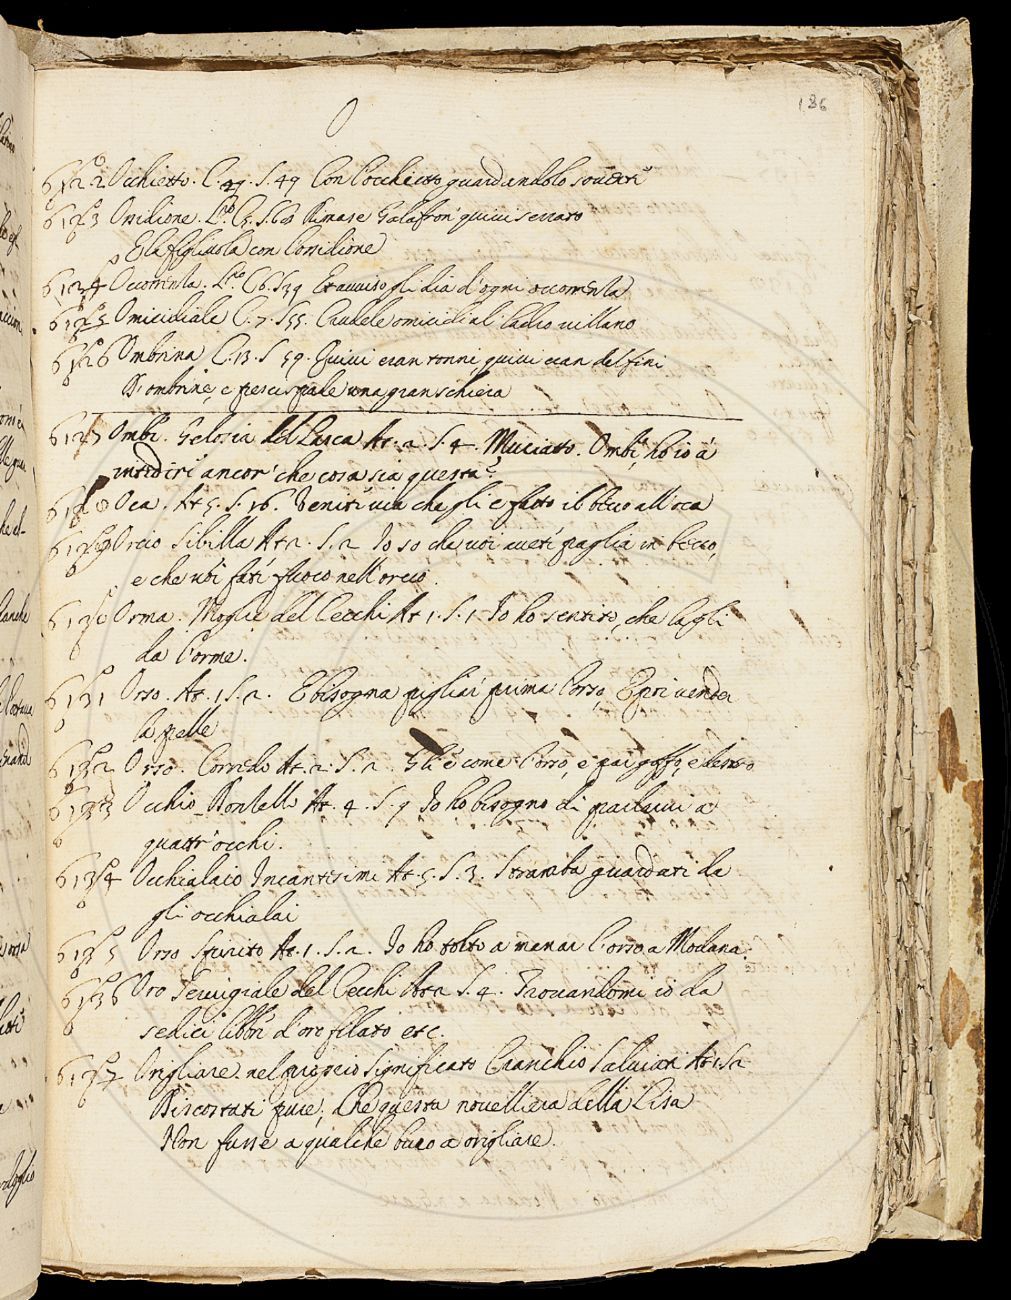 186
O
6122 Occhietto. C. 49. S. 49 Con l'occhietto guardandolo
6123 Ossidione. C. 5. S. 60 Rimase Galafron quivi serrato
E la figliuola con l'ossidione
6124 Occorrenza. C. 6. S. 39 Et avviso gli dia d'ogni occorrenza
6125 Omicidiale C. 7. S. 55. Crudele omicidial ladro villano
6126 Ombrina C. 13. S. 59. Quivi eran tonni, quivi eran delfini
D'ombrine, e pesci spade una gran schiera
6127 Ombè. Gelosia del Lasca At. 2. S. 4. Muciatto. Ombè, ho io a
intendere ancor' che cosa sia questa?
6128 Oca. At. 5. S. 16. Venite via che gli è fatto il becco all'oca
6129 Orcio Sibilla At. 2. S. 2 Io so che voi avete paglia in becco,
e che voi fate fuoco nell'orcio.
6130 Orma. Moglie del Cecchi At. 1. S. 1. Io ho sentito, che la gli
da l'orme.
6131 Orso. At. 1. S. 2. E bisogna pigliar prima l'orso, E poi vender
la pelle
6132 Orso. Corredo At. 2. S. 2. Gli è come l'orso, e par goffo, e
6133 Occhio Donzello At. 4. S. 9 Io ho bisogno di parlarvi a
quattr'occhi.
6134 Occhialaio Incantesimi At. 5. S. 3. Stramba guardati da
gli occhialai
6135 Orso Spirito At. 1. S. 2. Io ho tolto a menar l'orso a Modana.
6136 Oro Servigiale del Cecchi At. 2 S. 4. Trovandomi io da
sedici libbre d'oro filato etc.
6137 Origliare nel proprio significato Granchio Salviati At. 1. S. 2
Discostati pure, che questa novelliera della Lisa
Non fusse a qualche buco a origliare.